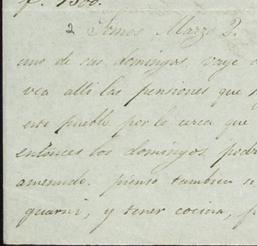 f. 1560.
2 Tomos Marzo 2.
uno de sus domingos vaye
vea alli las pensiones que
este pueblo por lo cerca que
entonces los domingos podr
amenudo. pienso tambien
guarni, y tener cocina, p